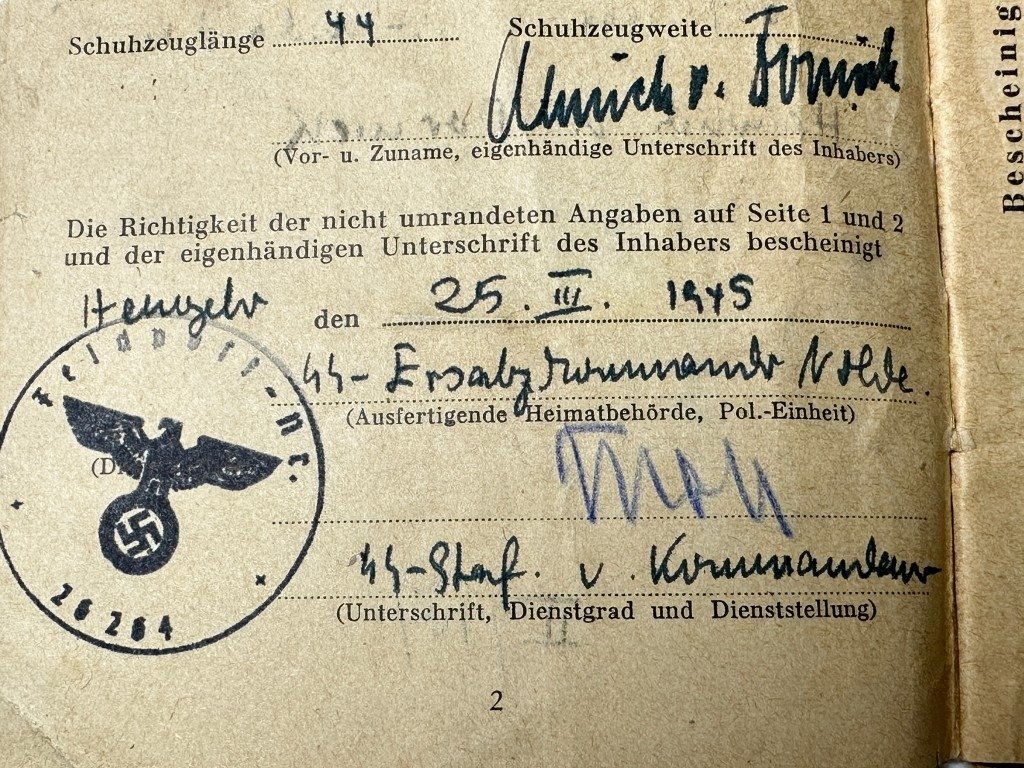 Schuhzeuglänge 44 Schuhzeugweite
v.
(Vor- u. Zuname, eigenhändige Unterschrift des Inhabers)
Die Richtigkeit der nicht umrandeten Angaben auf Seite 1 und 2
und der eigenhändigen Unterschrift des Inhabers bescheinigt
den 25. III. 1945
Feldpost-Nr.
SS-Ersatzkommando
(Ausfertigende Heimatbehörde, Pol.-Einheit)
(Di
SS-Staf. u. Kommandeur
(Unterschrift, Dienstgrad und Dienststellung)
26264
2
Bescheinig